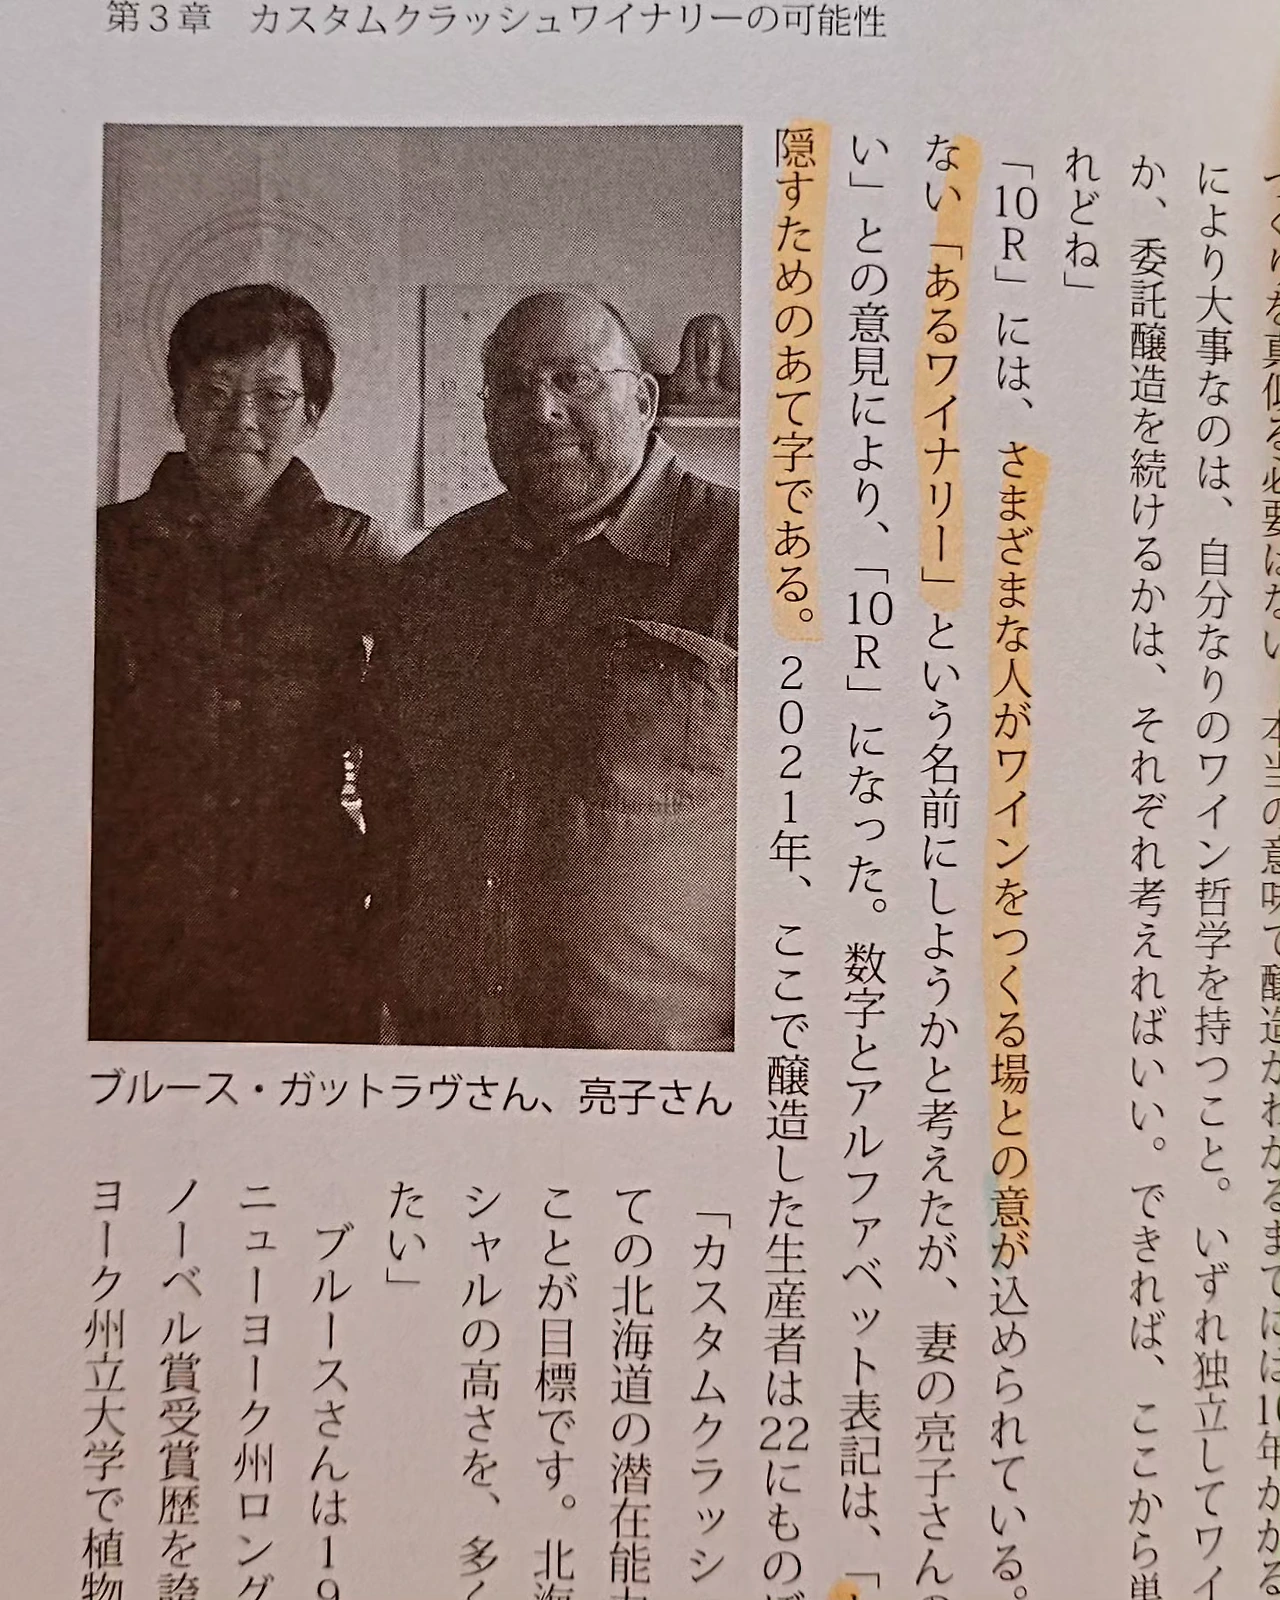 第３章　カスタムクラッシュワイナリーの可能性
つくりを真似る必要はない。本当の意味で醸造がわかるまでには10年かかる
により大事なのは、自分なりのワイン哲学を持つこと。いずれ独立してワイ
か、委託醸造を続けるかは、それぞれ考えればいい。できれば、ここから単
れどね」
「10R」には、さまざまな人がワインをつくる場との意が込められている。
ない「あるワイナリー」という名前にしようかと考えたが、妻の亮子さんの
い」との意見により、「10R」になった。数字とアルファベット表記は、「
隠すためのあて字である。２０２１年、ここで醸造した生産者は22にものぼ
ブルース・ガットラヴさん、亮子さん
「カスタムクラッシ
ての北海道の潜在能力
ことが目標です。北海
シャルの高さを、多く
たい」
ブルースさんは１９
ニューヨーク州ロング
ノーベル賞受賞歴を誇
ヨーク州立大学で植物